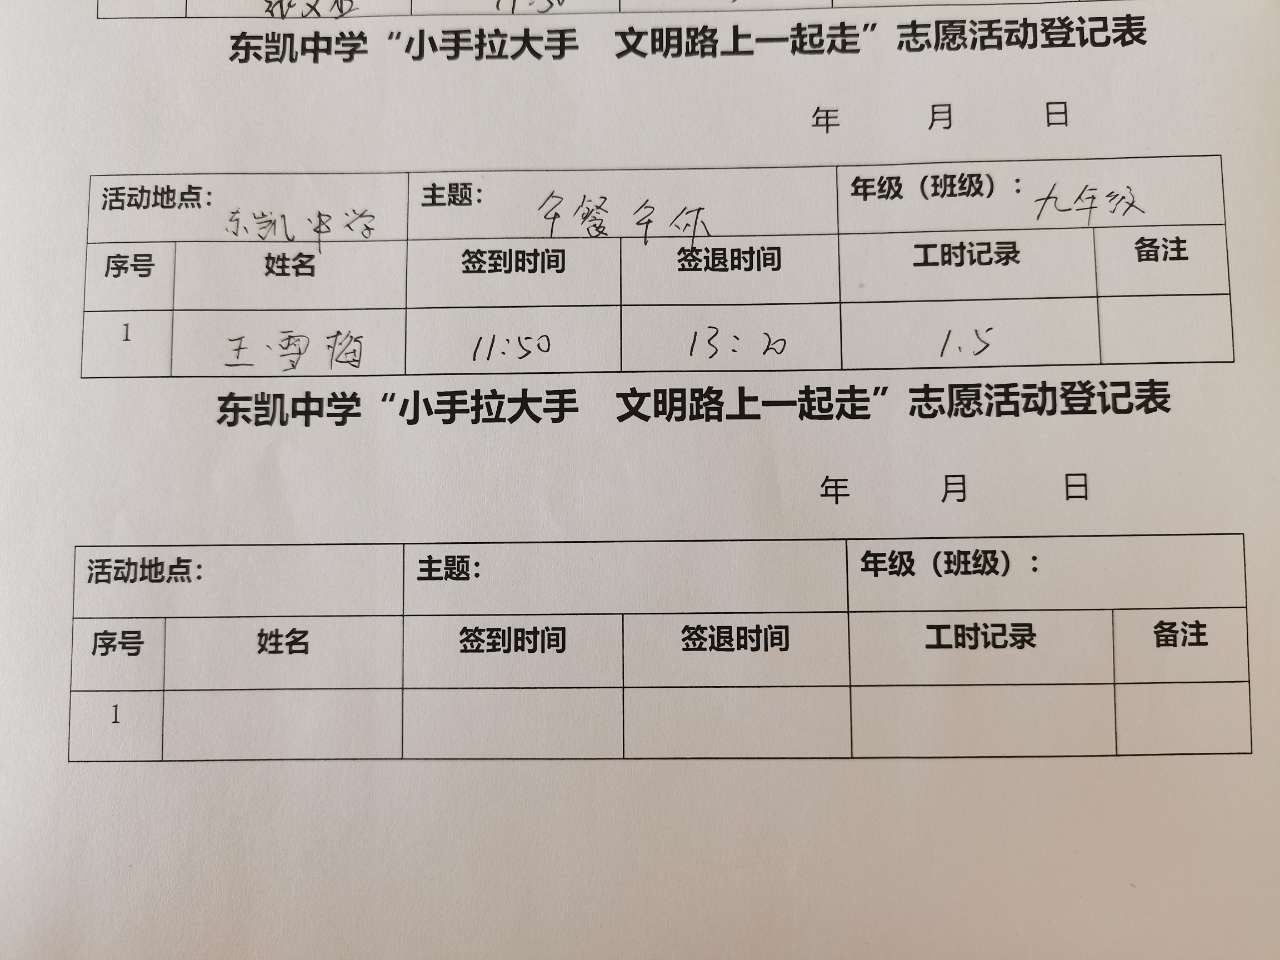 11:50
东凯中学“小手拉大手 文明路上一起走”志愿活动登记表
年 月 日
活动地点：东凯中学 主题：午餐午休 年级（班级）：九年级
序号 姓名 签到时间 签退时间 工时记录 备注
1 王雪梅 11:50 13:20 1.5
东凯中学“小手拉大手 文明路上一起走”志愿活动登记表
年 月 日
活动地点： 主题： 年级（班级）：
序号 姓名 签到时间 签退时间 工时记录 备注
1